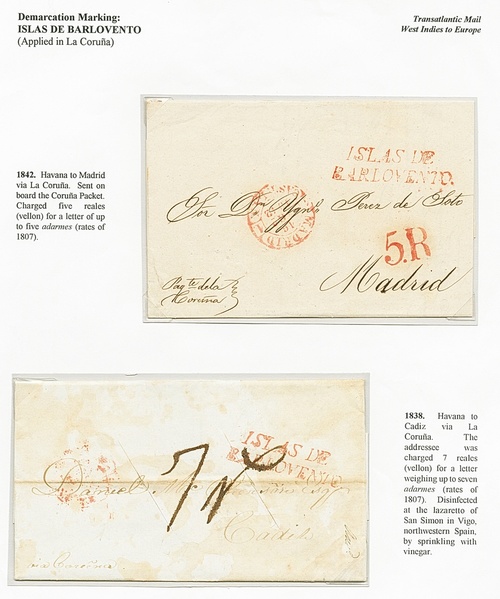 Demarcation Marking:
ISLAS DE BARLOVENTO
(Applied in La Coruña)
Transatlantic Mail
West Indies to Europe
1842. Havana to Madrid
via La Coruña. Sent on
board the Coruña Packet.
Charged five reales
(vellon) for a letter of up
to five adarmes (rates of
1807).
ISLAS DE
BARLOVENTO.
Sor Dn Ygno Perez de Soto
5.R
Madrid
Paqte de la
Coruña
1838. Havana to
Cadiz via La
Coruña. The
addressee was
charged 7 reales
(vellon) for a letter
weighing up to seven
adarmes (rates of
1807). Disinfected
at the lazaretto of
San Simon in Vigo,
northwestern Spain,
by sprinkling with
vinegar.
ISLAS DE
BARLOVENTO
7
Daniel
Esq
Cadiz
via Coruña